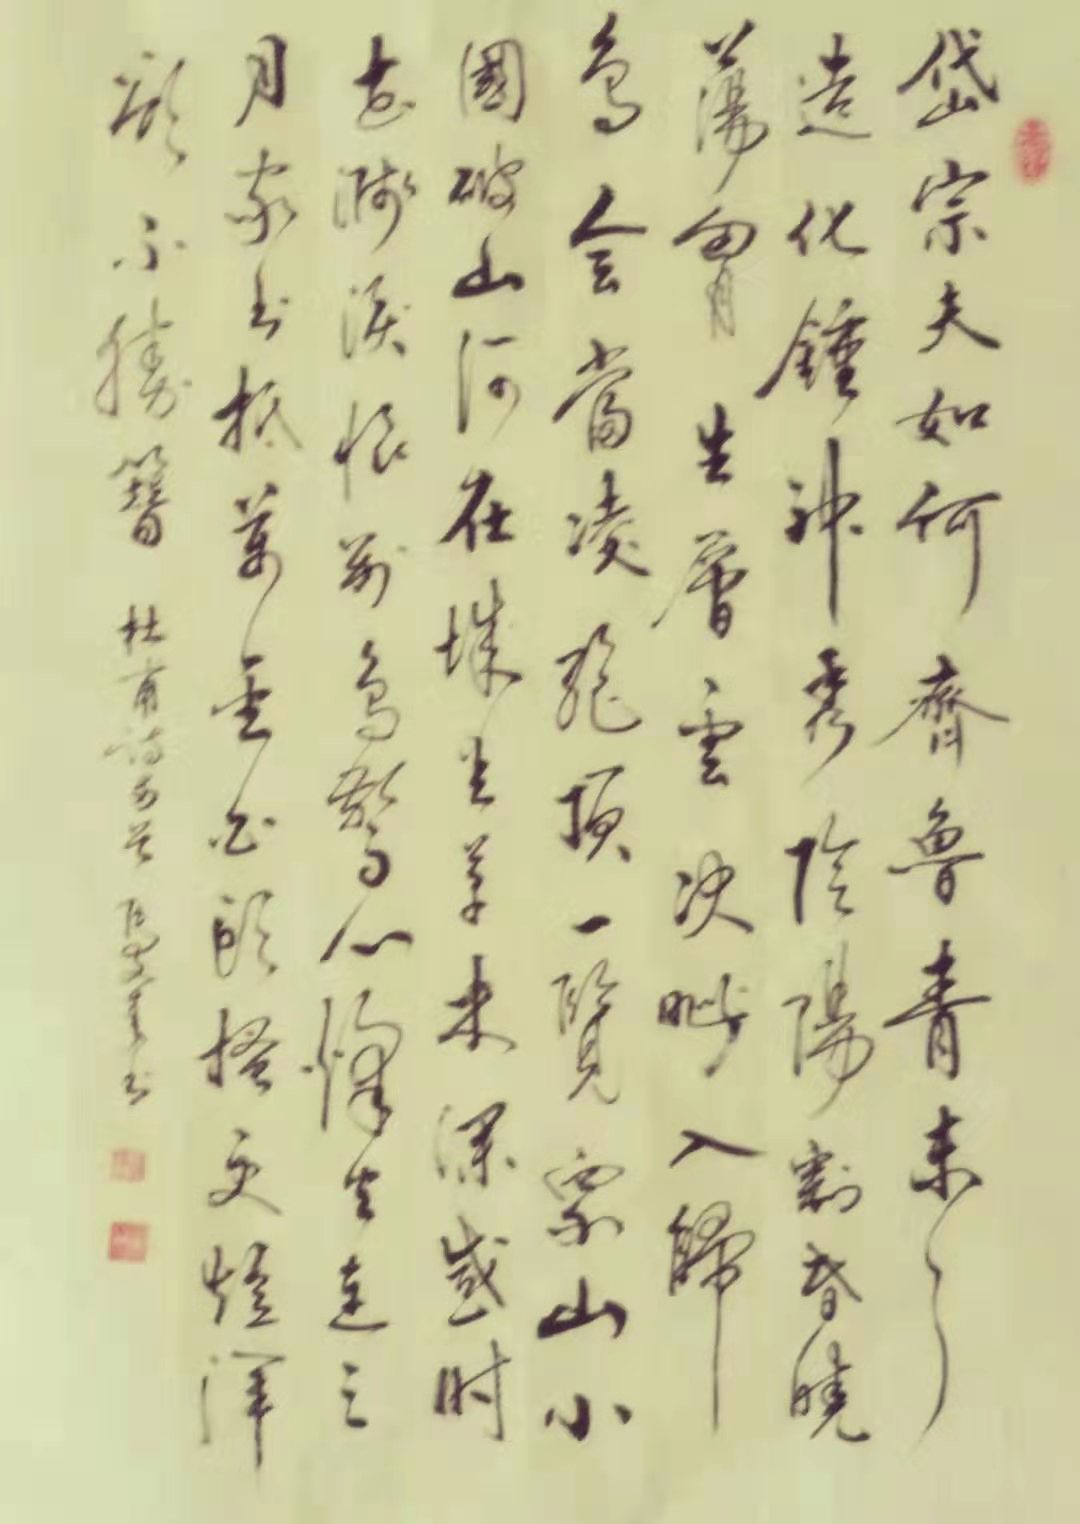 岱宗夫如何齊魯青未了
造化鍾神秀陰陽割昏曉
蕩胷生層雲決眦入歸
鳥會當凌絕頂一覽眾山小
國破山河在城春草木深感时
花濺淚恨別鳥驚心烽火連三
月家书抵萬金白頭搔更短渾
欲不勝簪 杜甫詩